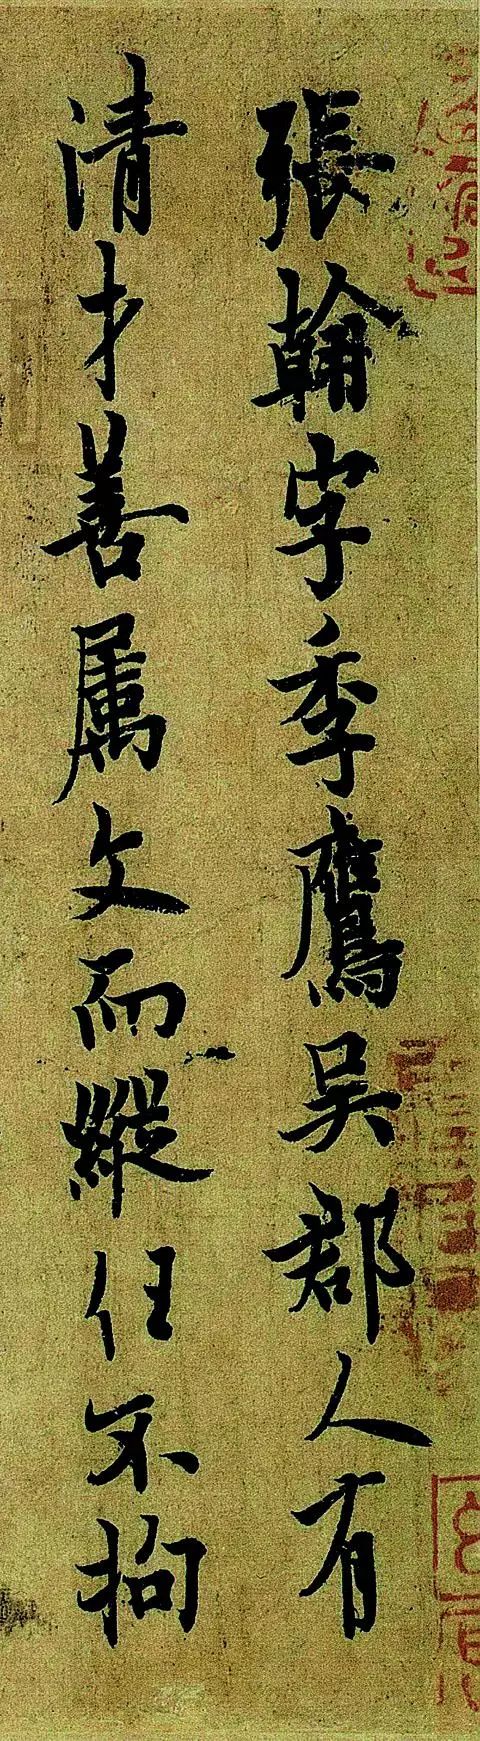 張翰字季鷹吴郡人有
清才善属文而縱任不拘